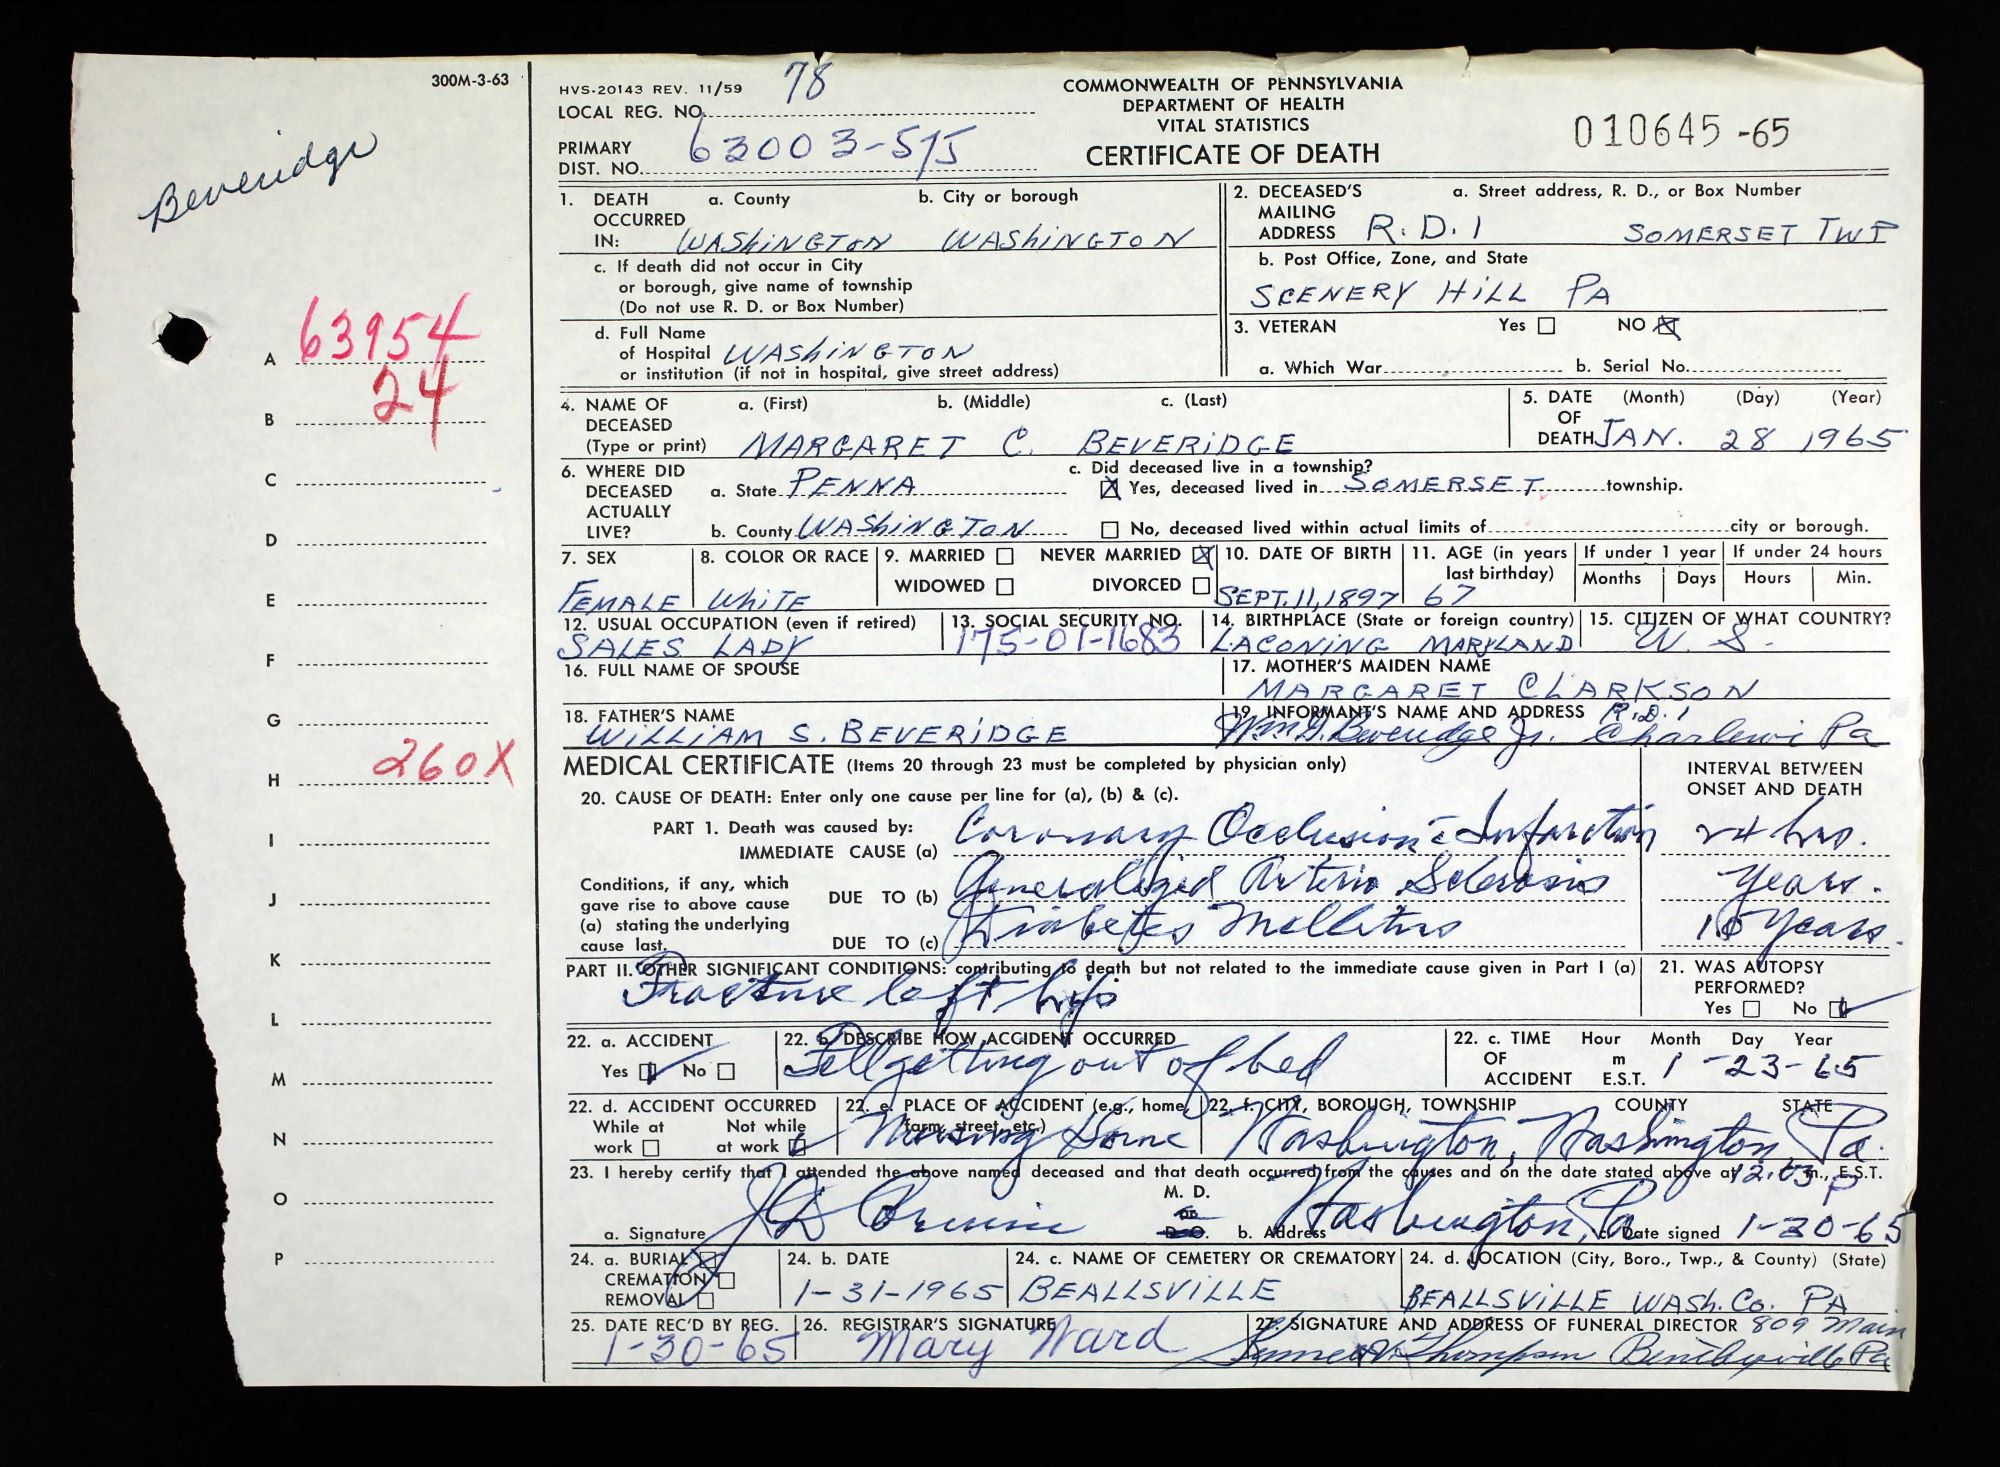 300M-3-63
Beveridge
A 63954
B 24
C
D
E
F
G
H 260X
I
J
K
L
M
N
O
P
HVS-20143 REV. 11/59 78
LOCAL REG. NO.
COMMONWEALTH OF PENNSYLVANIA
DEPARTMENT OF HEALTH
VITAL STATISTICS
CERTIFICATE OF DEATH
010645-65
PRIMARY
DIST. NO. 63003-515
1. DEATH OCCURRED IN: a. County WASHINGTON b. City or borough WASHINGTON
c. If death did not occur in City
or borough, give name of township
(Do not use R. D. or Box Number)
d. Full Name
of Hospital WASHINGTON
or institution (if not in hospital, give street address)
2. DECEASED'S MAILING ADDRESS a. Street address, R. D., or Box Number
R.D. 1 SOMERSET TWP
b. Post Office, Zone, and State
SCENERY HILL PA
3. VETERAN Yes ☐ NO ☒
a. Which War b. Serial No.
4. NAME OF DECEASED (Type or print) a. (First) b. (Middle) c. (Last)
MARGARET C. BEVERIDGE
5. DATE OF DEATH (Month) (Day) (Year)
JAN. 28 1965
6. WHERE DID DECEASED ACTUALLY LIVE? a. State PENNA
b. County WASHINGTON
c. Did deceased live in a township?
☒ Yes, deceased lived in SOMERSET township.
☐ No, deceased lived within actual limits of city or borough.
7. SEX
FEMALE
8. COLOR OR RACE
WHITE
9. MARRIED ☐ NEVER MARRIED ☒
WIDOWED ☐ DIVORCED ☐
10. DATE OF BIRTH
SEPT. 11, 1897
11. AGE (in years last birthday)
67
If under 1 year
Months Days
If under 24 hours
Hours Min.
12. USUAL OCCUPATION (even if retired)
SALES LADY
13. SOCIAL SECURITY NO.
175-01-1683
14. BIRTHPLACE (State or foreign country)
LACONING MARYLAND
15. CITIZEN OF WHAT COUNTRY?
U. S.
16. FULL NAME OF SPOUSE
17. MOTHER'S MAIDEN NAME
MARGARET CLARKSON
18. FATHER'S NAME
WILLIAM S. BEVERIDGE
19. INFORMANT'S NAME AND ADDRESS R.D. 1
Beveridge Jr. Pa
MEDICAL CERTIFICATE (Items 20 through 23 must be completed by physician only)
INTERVAL BETWEEN
ONSET AND DEATH
20. CAUSE OF DEATH: Enter only one cause per line for (a), (b) & (c).
PART 1. Death was caused by:
IMMEDIATE CAUSE (a) Coronary Occlusion c̄ Infarction 24 hrs.
Conditions, if any, which
gave rise to above cause
(a) stating the underlying
cause last.
DUE TO (b) Generalized Arterio Sclerosis years.
DUE TO (c) Diabetes Mellitus 10 years.
PART II. OTHER SIGNIFICANT CONDITIONS: contributing to death but not related to the immediate cause given in Part I (a)
Fracture left hip
21. WAS AUTOPSY
PERFORMED?
Yes ☐ No ☑
22. a. ACCIDENT
Yes ☑ No ☐
22. b. DESCRIBE HOW ACCIDENT OCCURRED
Fell getting out of bed
22. c. TIME OF ACCIDENT Hour Month Day Year
m E.S.T. 1-23-65
22. d. ACCIDENT OCCURRED
While at work ☐ Not while at work ☑
22. e. PLACE OF ACCIDENT (e.g., home, farm, street, etc.)
Nursing Home
22. f. CITY, BOROUGH, TOWNSHIP COUNTY STATE
Washington, Washington Pa.
23. I hereby certify that I attended the above named deceased and that death occurred from the causes and on the date stated above at 12:03 p m., E.S.T.
M. D.
or
D.O.
a. Signature b. Address Washington, Pa c. Date signed 1-30-65
24. a. BURIAL ☒
CREMATION ☐
REMOVAL ☐
24. b. DATE
1-31-1965
24. c. NAME OF CEMETERY OR CREMATORY
BEALLSVILLE
24. d. LOCATION (City, Boro., Twp., & County) (State)
BEALLSVILLE WASH. CO. PA
25. DATE REC'D BY REG.
1-30-65
26. REGISTRAR'S SIGNATURE
Mary Ward
27. SIGNATURE AND ADDRESS OF FUNERAL DIRECTOR 809 Main
Thompson Pa